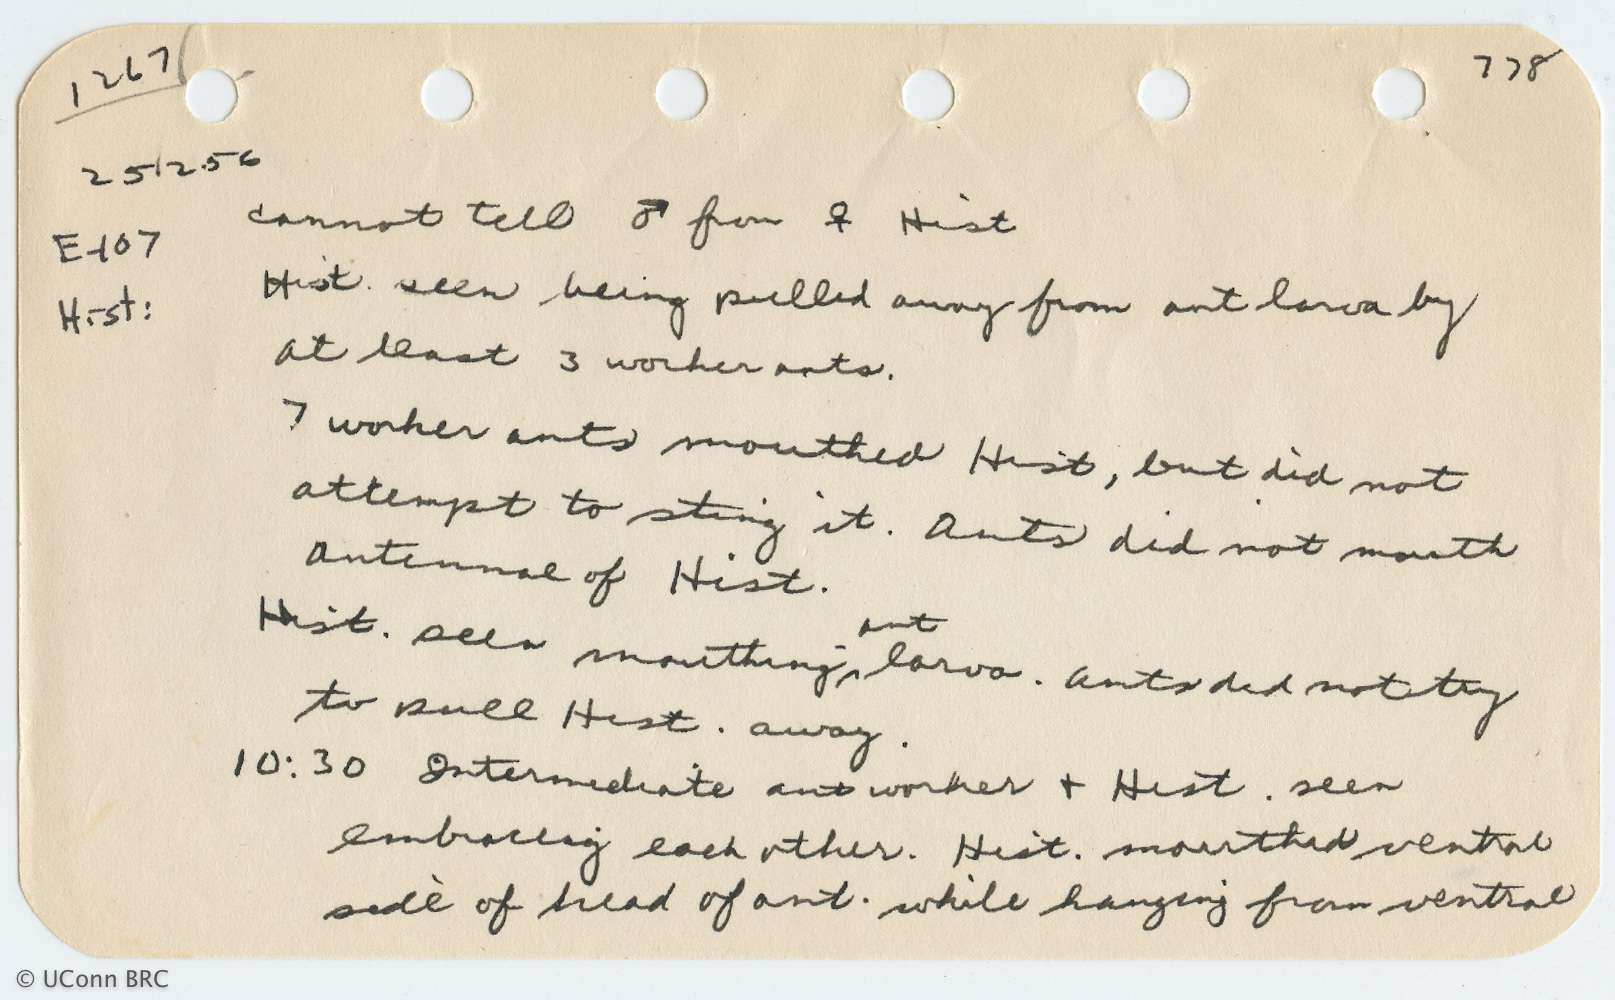 1267
778
25 12 56
cannot tell ♂ from ♀ Hist
E-107
Hist. seen being pulled away from ant larva by
Hist:
at least 3 worker ants.
7 worker ants mouthed Hist, but did not
attempt to sting it. Ants did not mouth
antennae of Hist.
ant
Hist. seen mouthing ^ larva. Ants did not try
to pull Hist. away.
10:30 Intermediate ant worker + Hist. seen
embracing each other. Hist. mouthed ventral
side of head of ant. while hanging from ventral
© UConn BRC